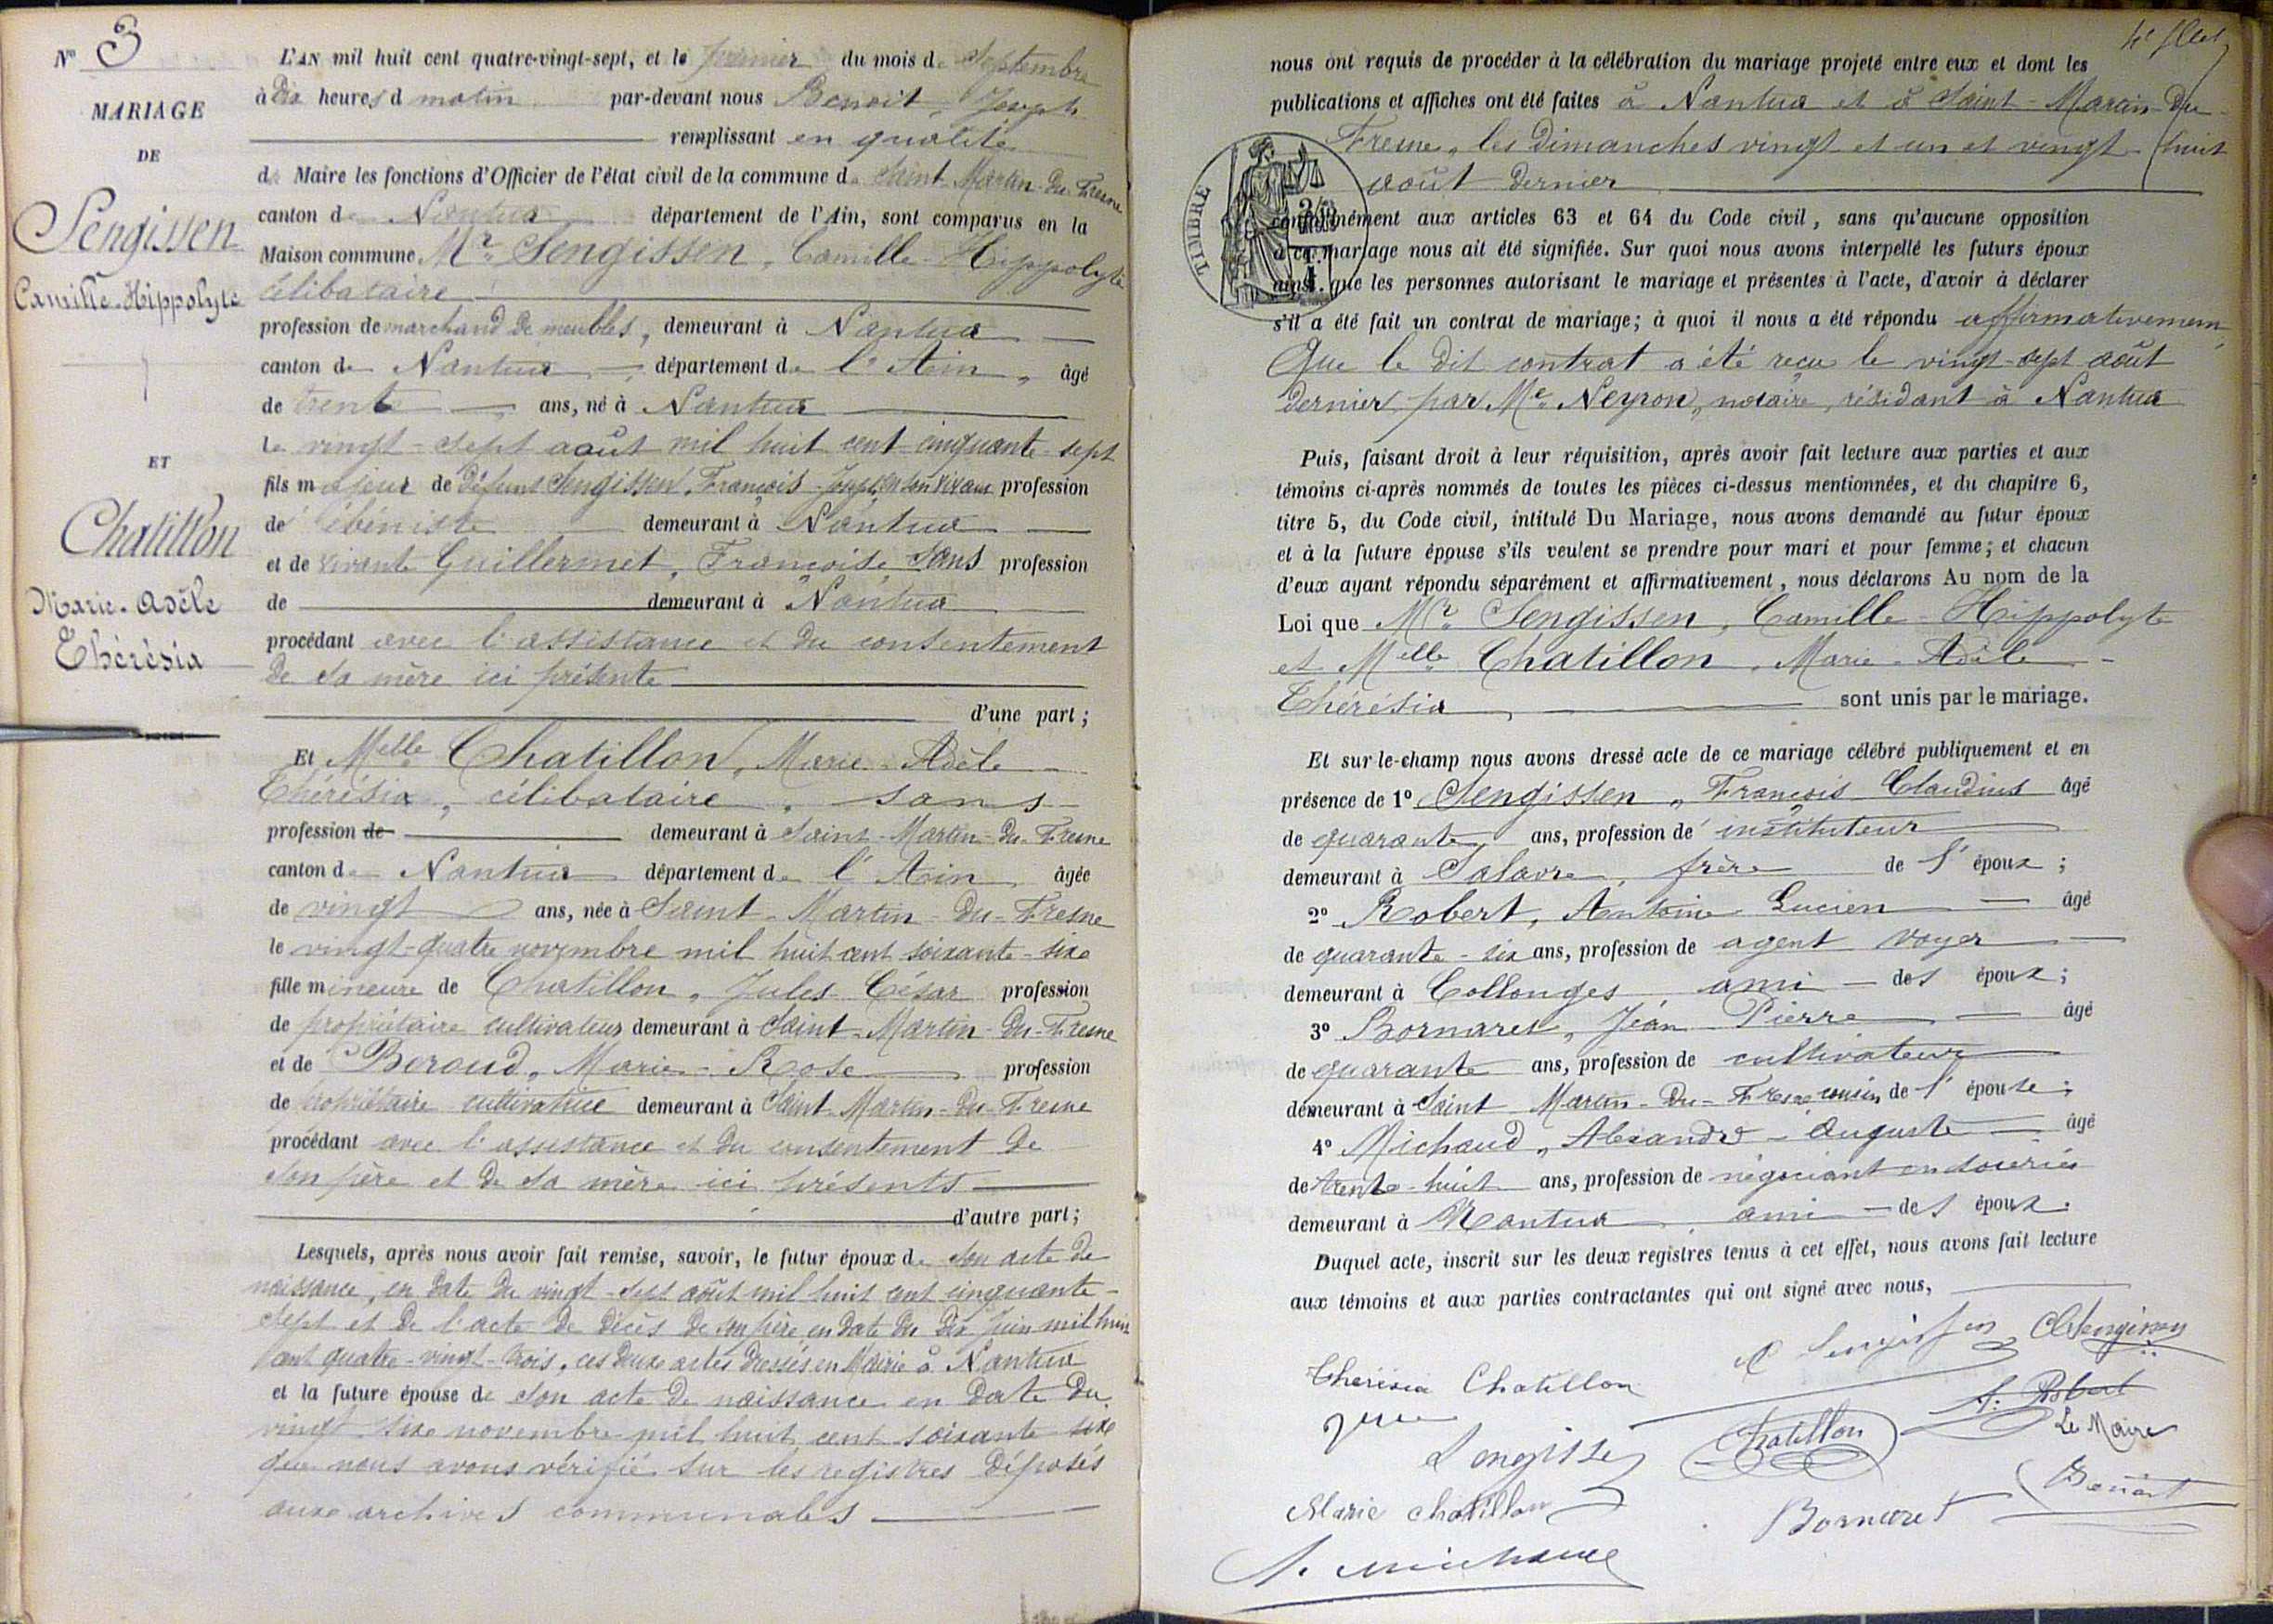 N° 3
MARIAGE
DE
Sengissen
Camille-Hippolyte
ET
Chatillon
Marie-Adèle
Thérésia
L'AN mil huit cent quatre-vingt-sept, et le premier du mois de Septembre
à dix heures d matin par-devant nous Benoit, Joseph
remplissant en qualité
de Maire les fonctions d'Officier de l'état civil de la commune de Saint-Martin-du-Fresne
canton de Nantua département de l'Ain, sont comparus en la
Maison commune Mr Sengissen, Camille-Hippolyte
célibataire
profession de marchand de meubles, demeurant à Nantua
canton de Nantua département de l'Ain, âgé
de trente ans, né à Nantua
le vingt-sept août mil huit cent cinquante-sept
fils majeur de défunt Sengissen, François-Joseph, en son vivant profession
de ébéniste demeurant à Nantua
et de vivante Guillermet, Françoise, sans profession
de demeurant à Nantua
procédant avec l'assistance et du consentement
de sa mère ici présente
d'une part;
Et Melle Chatillon, Marie-Adèle
Thérésia, célibataire, sans
profession de demeurant à Saint-Martin-du-Fresne
canton de Nantua département de l'Ain âgée
de vingt ans, née à Saint-Martin-du-Fresne
le vingt-quatre novembre mil huit cent soixante-six
fille mineure de Chatillon, Jules César profession
de propriétaire cultivateur demeurant à Saint-Martin-du-Fresne
et de Beroud, Marie-Rose profession
de propriétaire cultivatrice demeurant à Saint-Martin-du-Fresne
procédant avec l'assistance et du consentement de
son père et de sa mère ici présents
d'autre part;
Lesquels, après nous avoir fait remise, savoir, le futur époux de son acte de
naissance, en date du vingt-sept août mil huit cent cinquante-
sept et de l'acte de décès de son père en date du dix juin mil huit
cent quatre-vingt-trois, ces deux actes dressés en Mairie à Nantua
et la future épouse de son acte de naissance en date du
vingt-six novembre mil huit cent soixante-six
que nous avons vérifié sur les registres déposés
aux archives communales
4e fllet
nous ont requis de procéder à la célébration du mariage projeté entre eux et dont les
publications et affiches ont été faites à Nantua et à Saint-Martin-du-
Fresne, les dimanches vingt et un et vingt-huit
août dernier
TIMBRE
conformément aux articles 63 et 64 du Code civil, sans qu'aucune opposition
à ce mariage nous ait été signifiée. Sur quoi nous avons interpellé les futurs époux
ainsi que les personnes autorisant le mariage et présentes à l'acte, d'avoir à déclarer
s'il a été fait un contrat de mariage; à quoi il nous a été répondu affirmativement,
Que le dit contrat a été reçu le vingt-sept août
dernier, par Me Neyron, notaire, résidant à Nantua
Puis, faisant droit à leur réquisition, après avoir fait lecture aux parties et aux
témoins ci-après nommés de toutes les pièces ci-dessus mentionnées, et du chapitre 6,
titre 5, du Code civil, intitulé Du Mariage, nous avons demandé au futur époux
et à la future épouse s'ils veulent se prendre pour mari et pour femme; et chacun
d'eux ayant répondu séparément et affirmativement, nous déclarons Au nom de la
Loi que Mr Sengissen, Camille-Hippolyte
et Melle Chatillon, Marie-Adèle-
Thérésia, sont unis par le mariage.
Et sur-le-champ nous avons dressé acte de ce mariage célébré publiquement et en
présence de 1° Sengissen, François-Claudius âgé
de quarante ans, profession de instituteur
demeurant à Salavre, frère de l'époux;
2° Robert, Antoine Lucien âgé
de quarante-six ans, profession de agent voyer
demeurant à Collonges ami des époux;
3° Bornaret, Jean Pierre âgé
de quarante ans, profession de cultivateur
demeurant à Saint Martin-du-Fresne cousin de l'épouse;
4° Michaud, Alexandre-Auguste âgé
de trente-huit ans, profession de négociant en soieries
demeurant à Nantua, ami des époux.
Duquel acte, inscrit sur les deux registres tenus à cet effet, nous avons fait lecture
aux témoins et aux parties contractantes qui ont signé avec nous,
C Sengissen
Thérésia Chatillon
A. Robert
Le Maire
Sengisse
Chatillon
Benoit
Marie Chatillon
Bornaret
A. Michaud